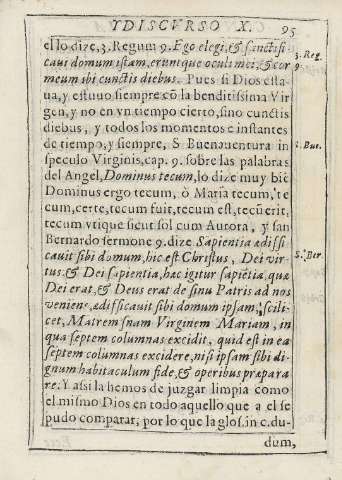 YDISCVRSO X. 95
el lo dize, 3. Regum 9. Ego elegi, & sanctifi-
caui domum istam, erunt que oculi mei, & cor
meum ibi cunctis diebus. Pues si Dios esta-
ua, y estuuo siempre cõ la benditissima Vir
gen, y no en vn tiempo cierto, sino cunctis
diebus, y todos los momentos e instantes
de tiempo, y siempre, S Buenauentura in
speculo Virginis, cap. 9. sobre las palabras
del Angel, Dominus tecum, lo dize muy biẽ
Dominus ergo tecum, ò Maria tecum, te
cum, certe, tecum fuit, tecum est, tecũ erit,
tecum vtique sicut sol cum Aurora, y san
Bernardo sermone 9. dize Sapientia ædifi
cauit sibi domum, hic est Christus, Dei vir
tus & Dei sapientia, hac igitur sapiẽtia, quæ
Dei erat, & Deus erat de sinu Patris ad nos
veniens, ædificauit sibi domum ipsam, scili
cet, Matrem suam Virginem Mariam, in
qua septem columnas excidit, quid est in ea
septem columnas excidere, nisi ipsam sibi di
gnum habitaculum fide, & operibus præpara
re. Y assi la hemos de juzgar limpia como
el mismo Dios en todo aquello que a el se
pudo comparar, por lo que la glos. in c. du-
dum,
3. Reg.
9.
S. Bue.
S. Ber.